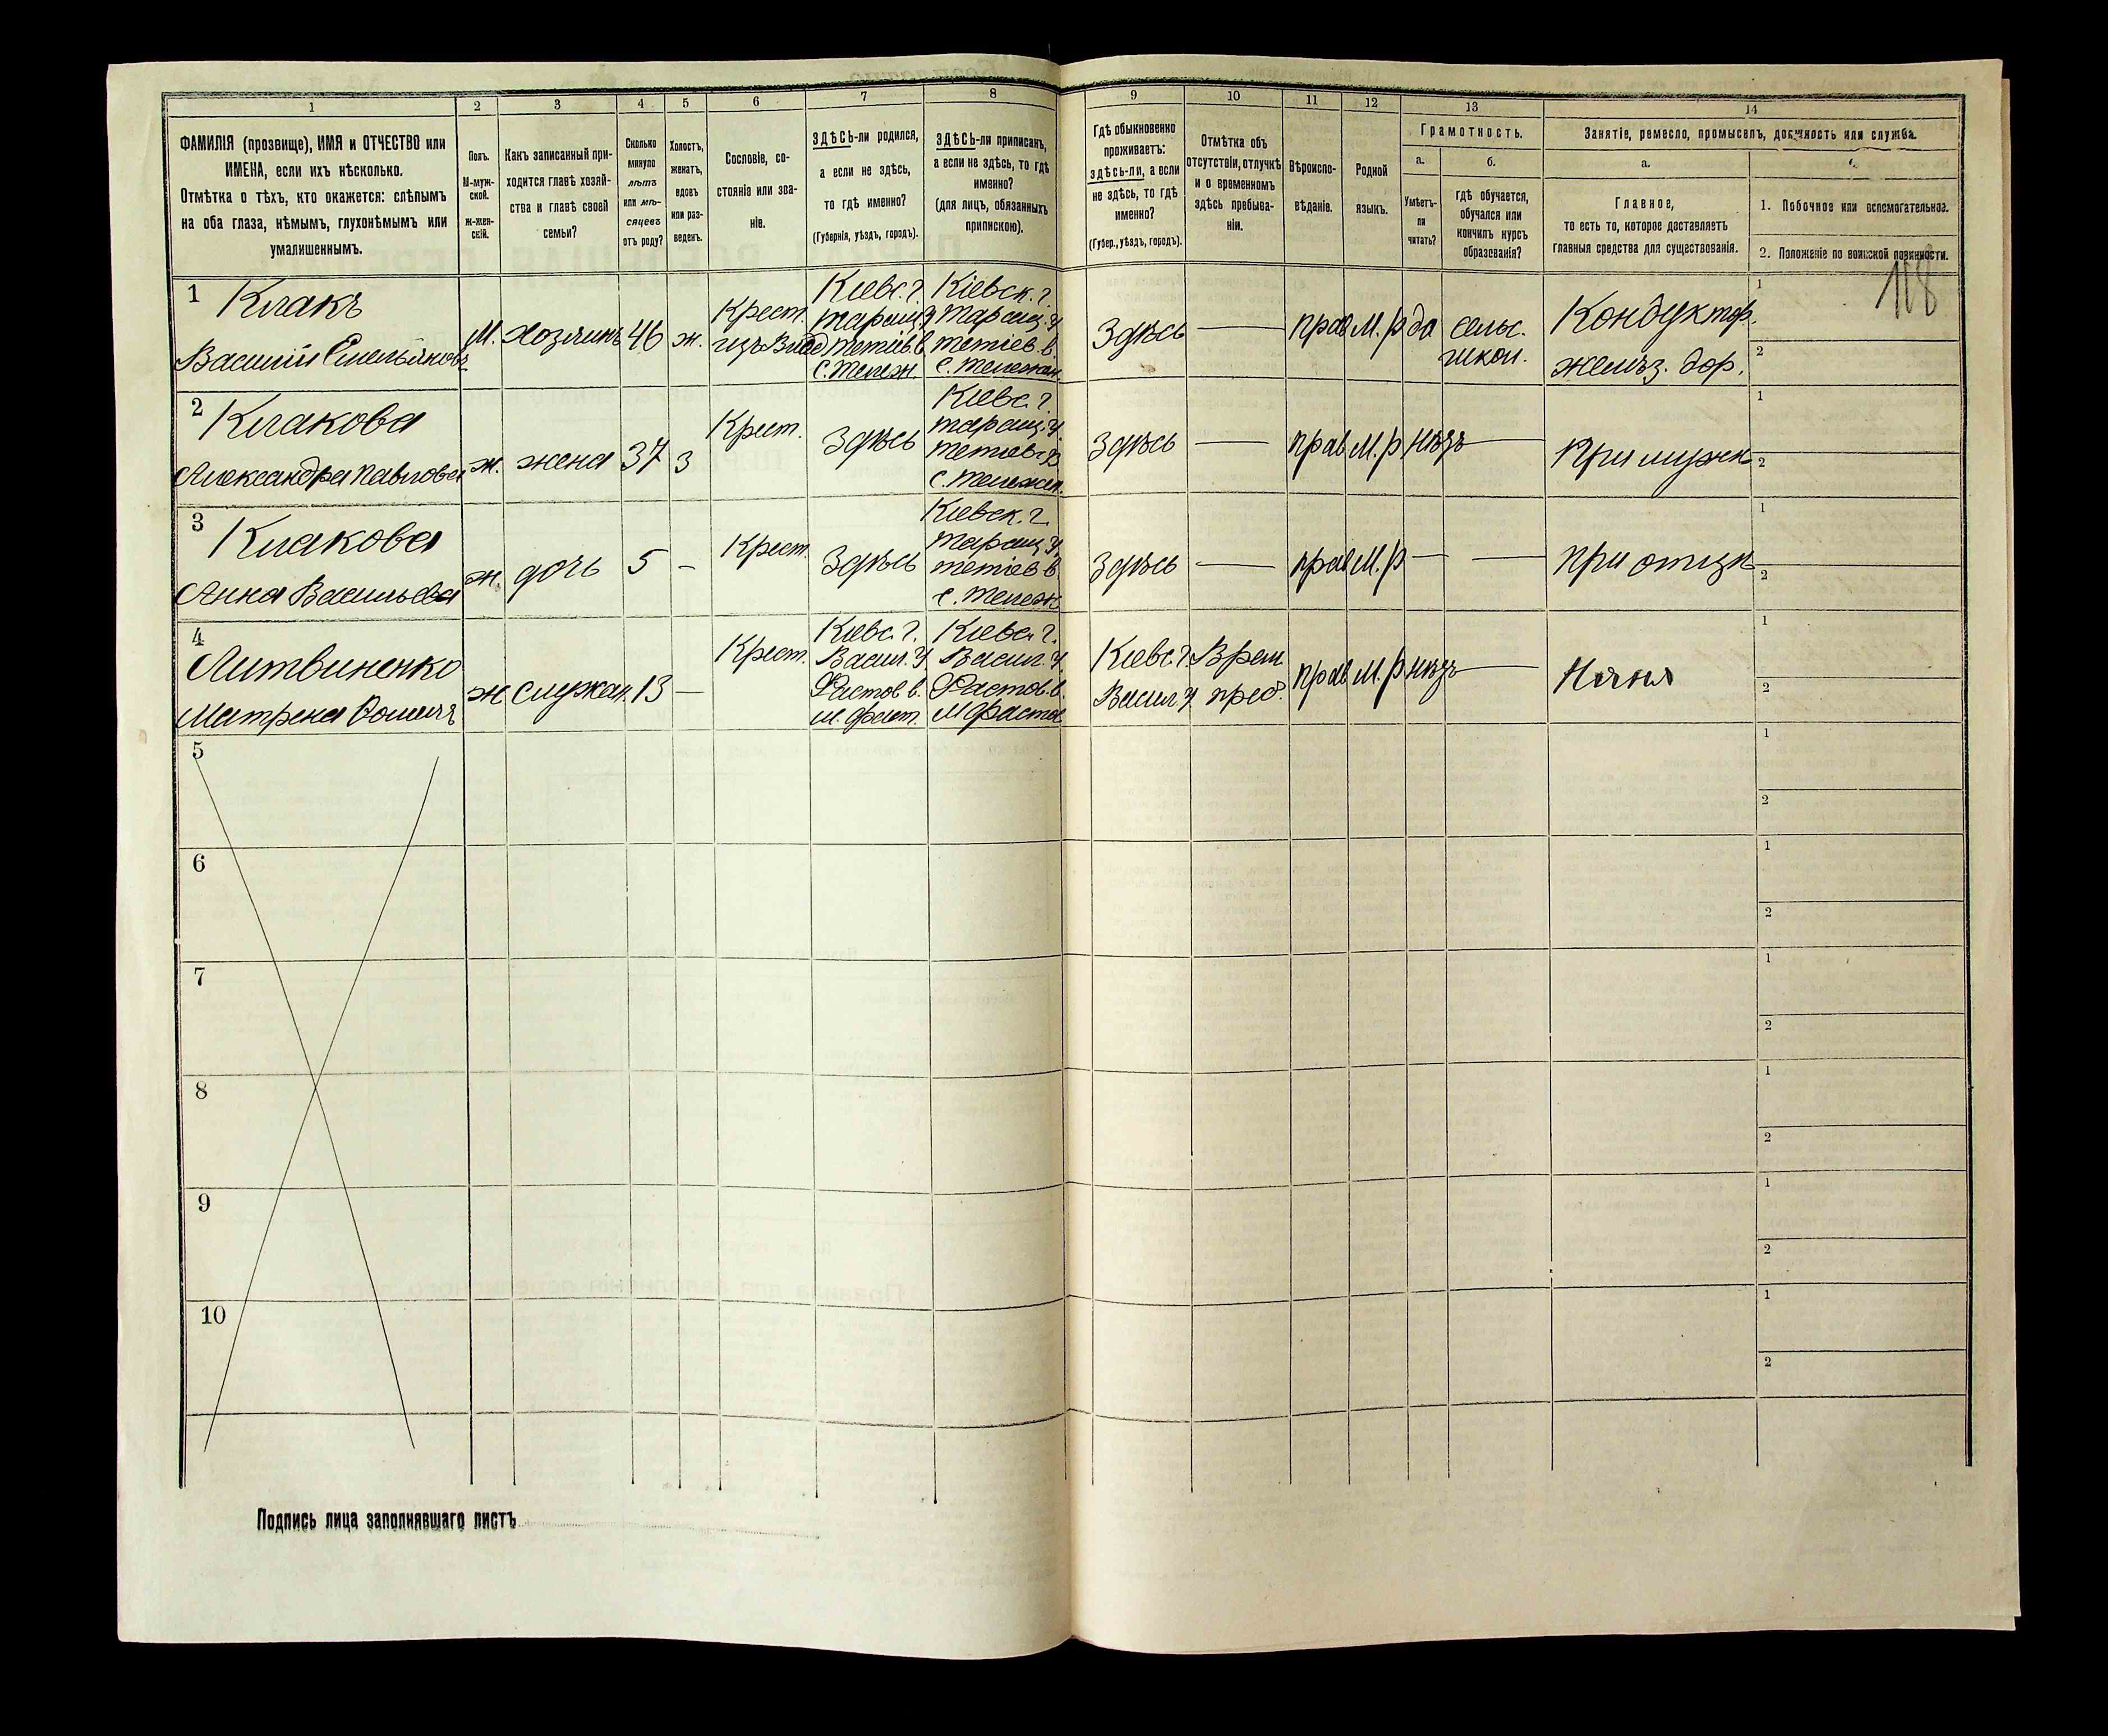 1 2 3 4 5 6 7 8 9 10 11 12 13 14
ФАМИЛІЯ (прозвище), ИМЯ и ОТЧЕСТВО или
ИМЕНА, если ихъ нѣсколько.
Отмѣтка о тѣхъ, кто окажется: слѣпымъ
на оба глаза, нѣмымъ, глухонѣмымъ или
умалишеннымъ.
Полъ.
М-муж-
ской.
Ж-жен-
скій.
Какъ записанный при-
ходится главѣ хозяй-
ства и главѣ своей
семьи?
Сколько
минуло
лѣтъ
или мѣ-
сяцевъ
отъ роду?
Холостъ,
женатъ,
вдовъ
или раз-
веденъ.
Сословіе, со-
стояніе или зва-
ніе.
ЗДѢСЬ-ли родился,
а если не здѣсь,
то гдѣ именно?
(Губернія, уѣздъ, городъ).
ЗДѢСЬ-ли приписанъ,
а если не здѣсь, то гдѣ
именно?
(для лицъ, обязанныхъ
припискою).
Гдѣ обыкновенно
проживаетъ:
здѣсь-ли, а если
не здѣсь, то гдѣ
именно?
(Губер., уѣздъ, городъ).
Отмѣтка объ
отсутствіи, отлучкѣ
и о временномъ
здѣсь пребыва-
ніи.
Вѣроиспо-
вѣданіе.
Родной
языкъ.
Грамотность.
а.
Умѣетъ-
ли
читать?
б.
гдѣ обучается,
обучался или
кончилъ курсъ
образованія?
Занятіе, ремесло, промыселъ, должность или служба.
а.
Главное,
то есть то, которое доставляетъ
главныя средства для существованія.
1. Побочное или вспомогательное.
2. Положеніе по воинской повинности.
108
1
Клакъ
Василій Емельяновъ
М.
Хозяинъ
46
ж.
Крест.
Кіевс. г.
Таращ. у
Тетіев. в.
с. Тележ.
Кіевск. г.
Таращ. у
Тетіев. в.
с. Тележан.
Здѣсь
прав
М. р
да
сельс.
школ.
Кондуктор.
желѣз. дор.
1
2
2
Клакова
Александра Павлова
ж.
жена
37
з
Крест.
Здѣсь
Кіевс. г.
Таращ. у.
Тетіев. в
с. Тележан.
Здѣсь
прав
М. р
нѣтъ
При мужѣ
1
2
3
Клакова
Анна Васильева
ж.
дочь
5
–
Крест.
Здѣсь
Кіевск. г.
Таращ. у
Тетіев в
с. Тележ
Здѣсь
прав
М. р
при отцѣ
1
2
4
Литвиненко
Матрена
ж
служан.
13
–
Крест.
Кіевс. г.
Васил. у
Фастов в.
м. Фаст.
Кіевс. г.
Васил. у
Фастов. в.
м Фастов
Кіевс. г.
Васил у
Врем.
преб.
прав
М. р
нѣтъ
Няня
1
2
5
1
2
6
1
2
7
1
2
8
1
2
9
1
2
10
1
2
Подпись лица заполнявшаго листъ